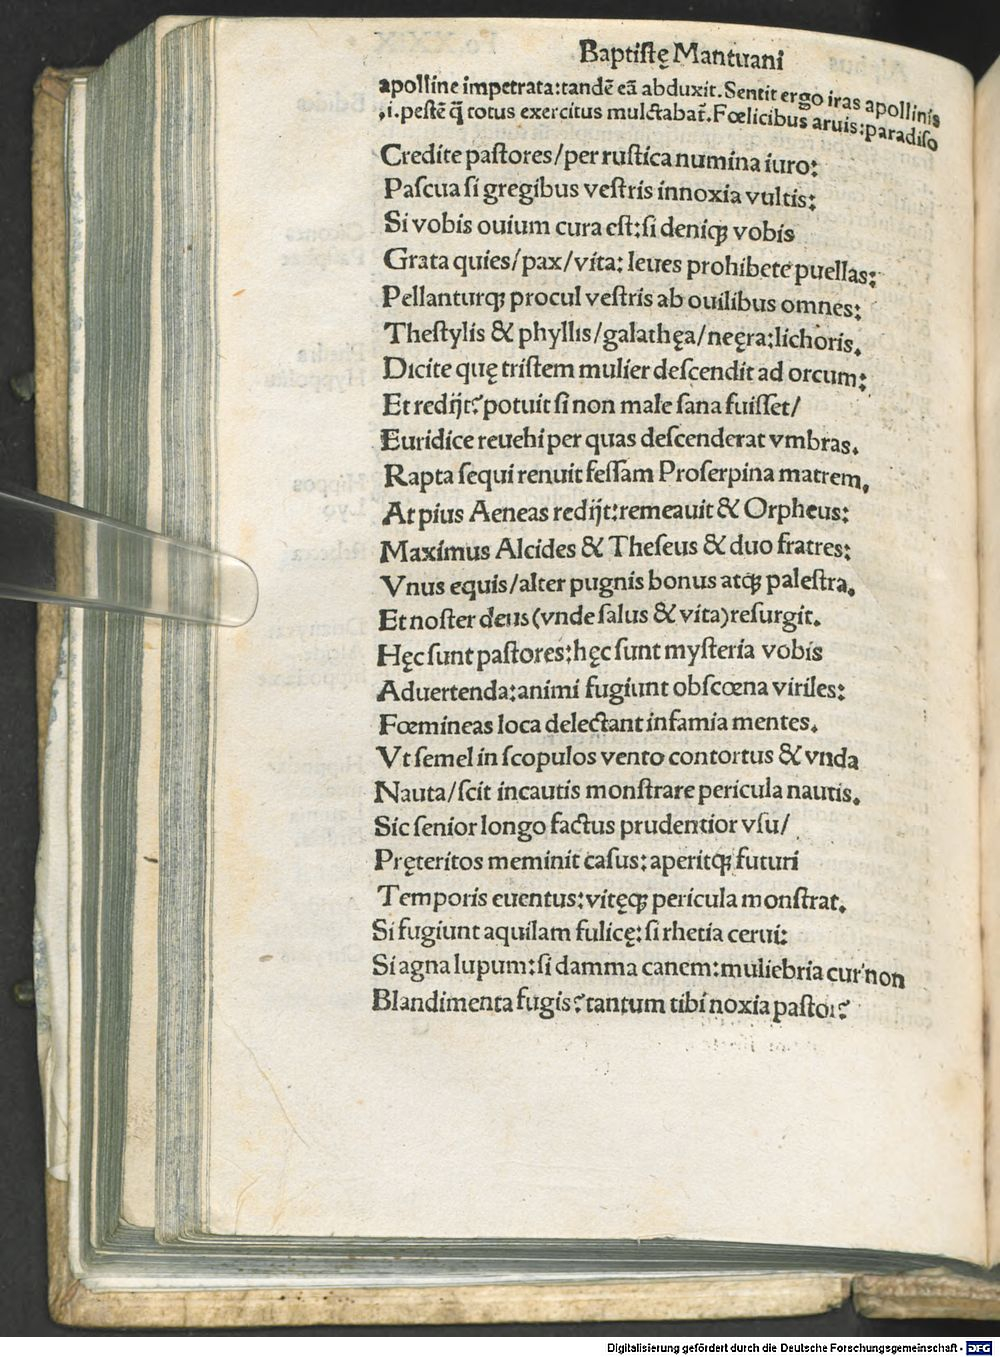 Baptistę Mantuani
apolline impetrata:tandē eā abduxit.Sentit ergo iras apollinis
,i.pestē q̄ totus exercitus mulctabat̄.Fœlicibus aruis:paradiso
Credite pastores/per rustica numina iuro:
Pascua si gregibus vestris innoxia vultis:
Si vobis ouium cura est:si deniqꝫ vobis
Grata quies/pax/vita: leues prohibete puellas:
Pellanturqꝫ procul vestris ab ouilibus omnes:
Thestylis & phyllis/galathęa/neęra:lichoris.
Dicite quę tristem mulier descendit ad orcum:
Et redijt?potuit si non male sana fuisset/
Euridice reuehi per quas descenderat vmbras.
Rapta sequi renuit fessam Proserpina matrem,
At pius Aeneas redijt:remeauit & Orpheus:
Maximus Alcides & Theseus & duo fratres:
Vnus equis/alter pugnis bonus atqꝫ palestra.
Et noster deus(vnde salus & vita)resurgit.
Hęc sunt pastores:hęc sunt mysteria vobis
Aduertenda:animi fugiunt obscœna viriles:
Fœmineas loca delectant infamia mentes.
Vt semel in scopulos vento contortus & vnda
Nauta/scit incautis monstrare pericula nautis.
Sic senior longo factus prudentior vsu/
Pręteritos meminit casus:aperitqꝫ futuri
Temporis euentus:vitęqꝫ pericula monstrat.
Si fugiunt aquilam fulicę:si rhetia cerui:
Si agna lupum:si damma canem:muliebria cur non
Blandimenta fugis?tantum tibi noxia pastor?
Digitalisierung gefördert durch die Deutsche Forschungsgemeinschaft - DFG